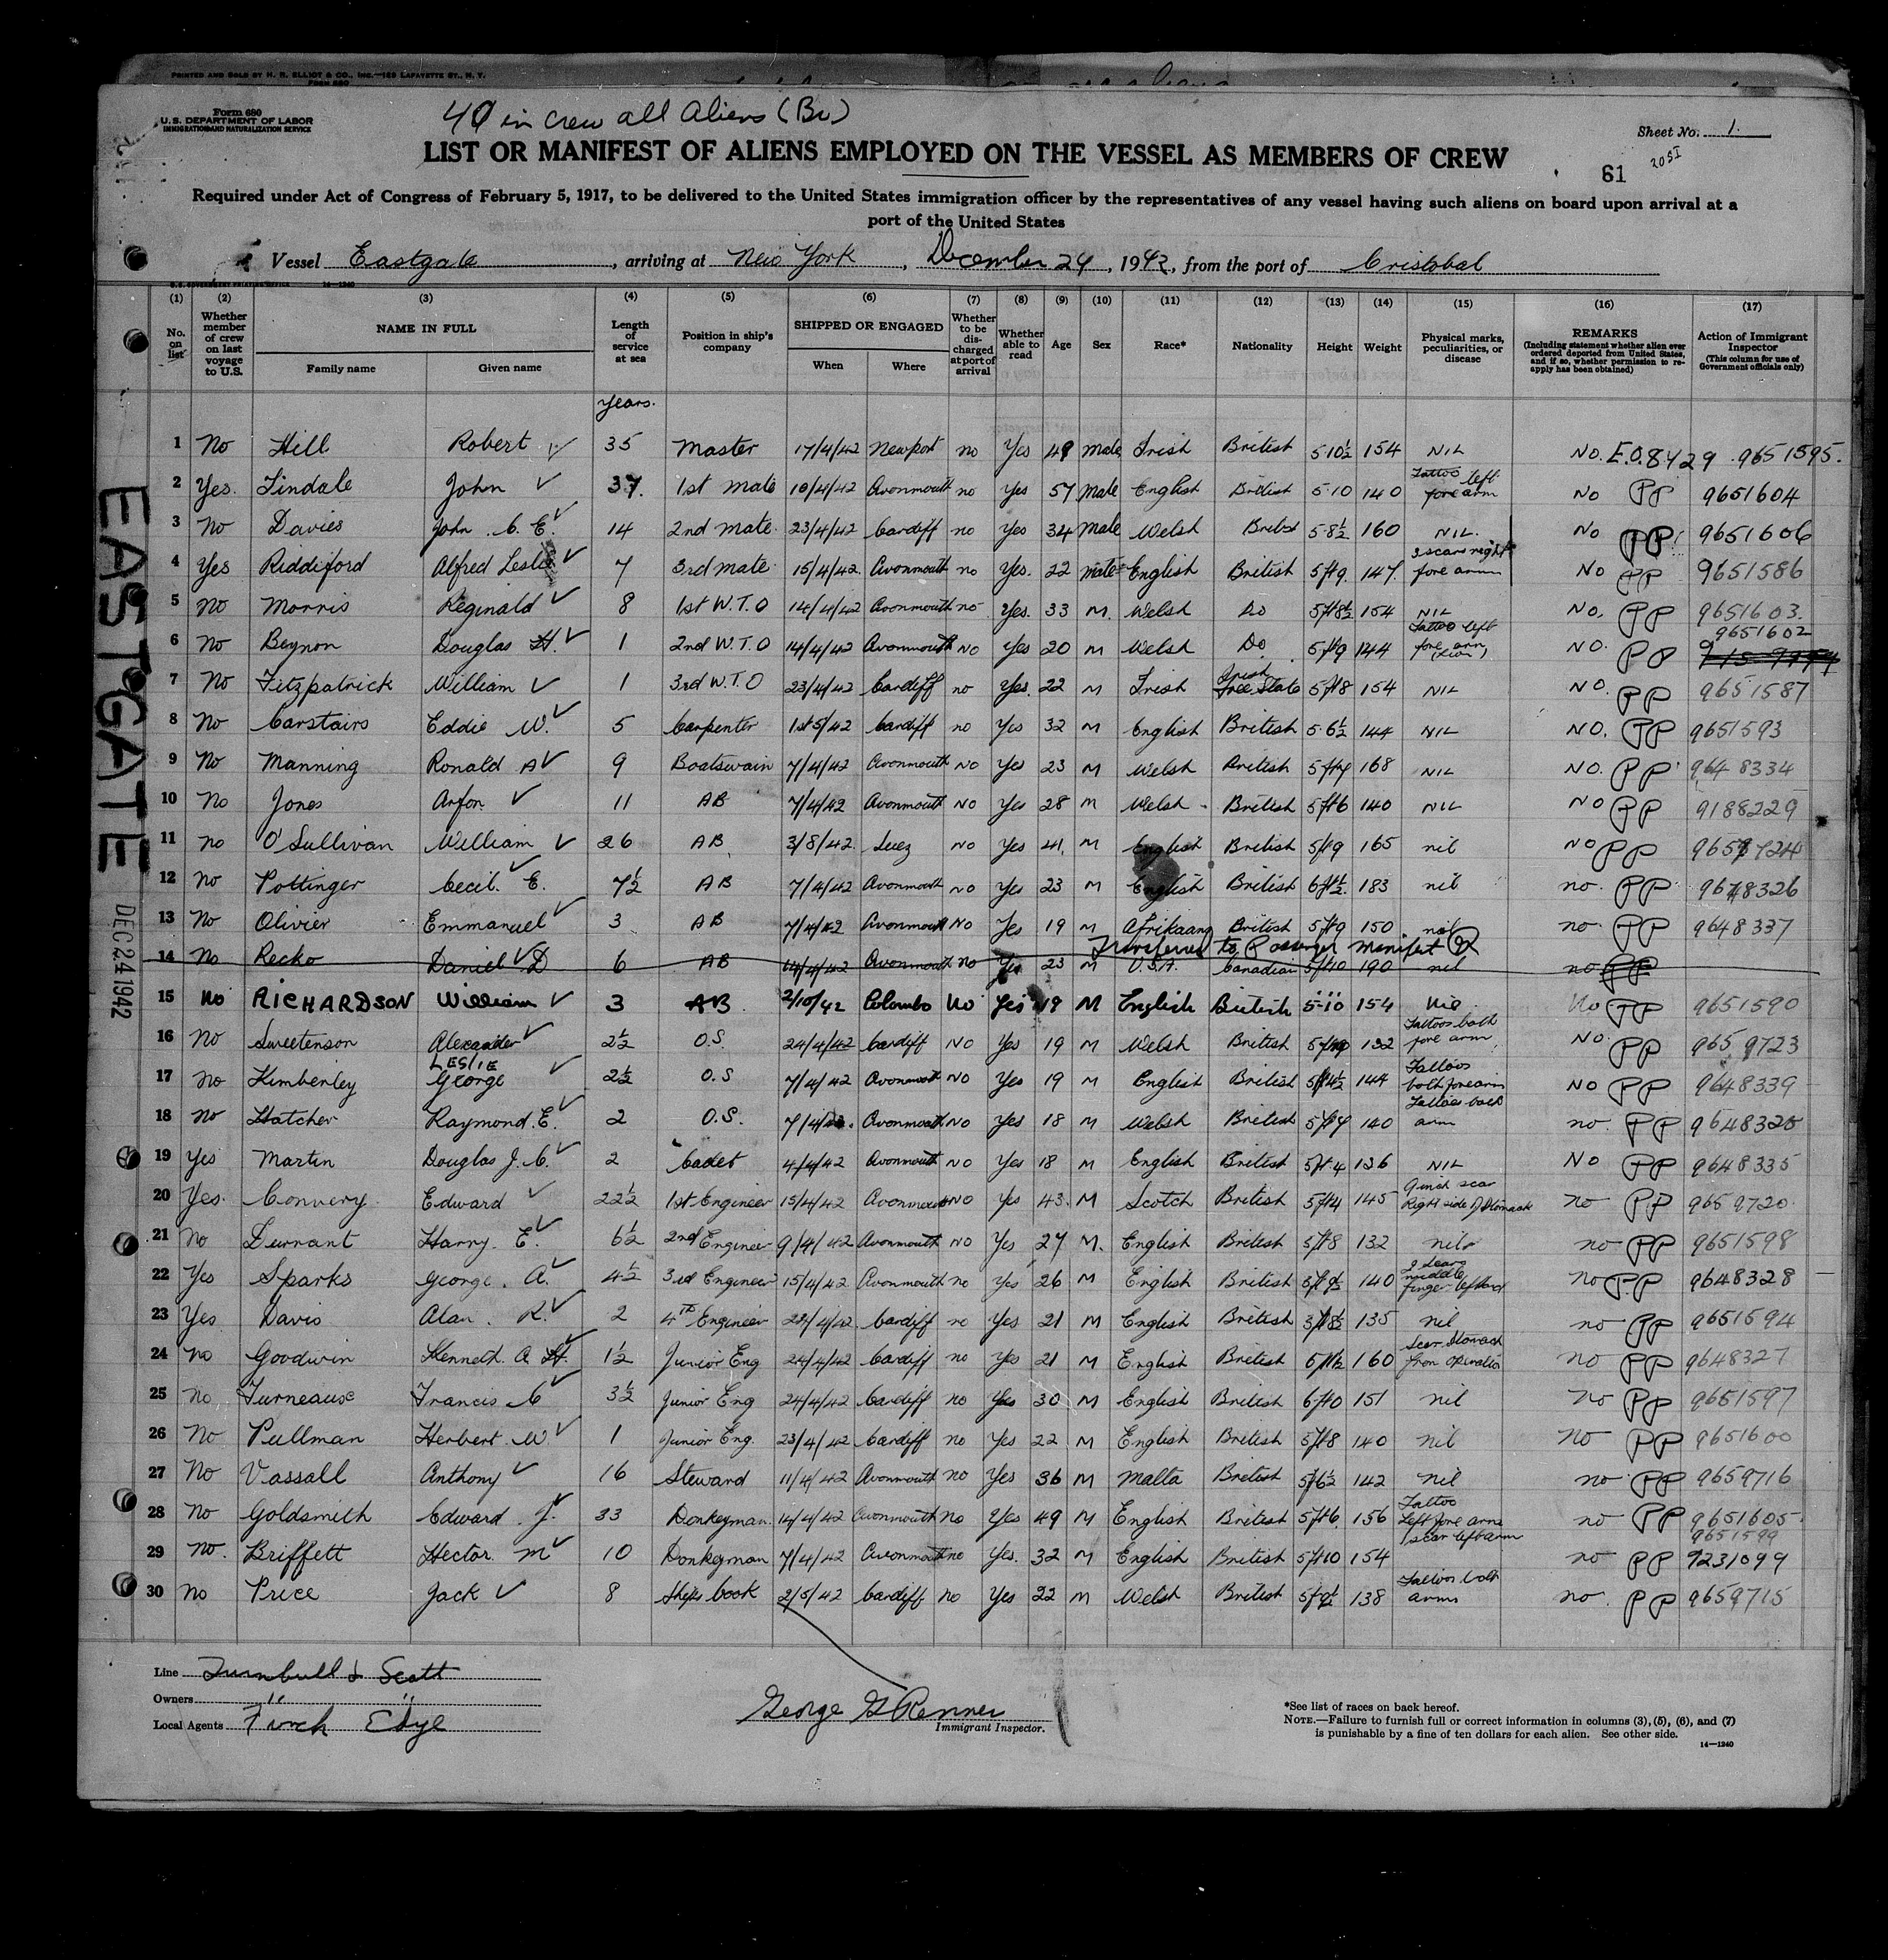 PRINTED AND SOLD BY H. R. ELLIOT & CO., INC.—153 LAFAYETTE ST., N. Y.
Form 680
Form 680
U.S. DEPARTMENT OF LABOR
IMMIGRATION AND NATURALIZATION SERVICE
40 in crew all Aliens (Br)
Sheet No. 1.
LIST OR MANIFEST OF ALIENS EMPLOYED ON THE VESSEL AS MEMBERS OF CREW
61
Required under Act of Congress of February 5, 1917, to be delivered to the United States immigration officer by the representatives of any vessel having such aliens on board upon arrival at a
port of the United States
Vessel Eastgate, arriving at New York, December 24, 1942, from the port of Cristobal
(1) (2) (3) (4) (5) (6) (7) (8) (9) (10) (11) (12) (13) (14) (15) (16) (17)
No. on list
Whether member of crew on last voyage to U.S.
NAME IN FULL
Family name Given name
Length of service at sea
Position in ship's company
SHIPPED OR ENGAGED
When Where
Whether to be discharged at port of arrival
Whether able to read
Age
Sex
Race*
Nationality
Height
Weight
Physical marks, peculiarities, or disease
REMARKS
(Including statement whether alien ever ordered deported from United States, and if so, whether permission to re-apply has been obtained)
Action of Immigrant Inspector
(This column for use of Government officials only)
years.
1 No Hill Robert 35 Master 17/4/42 Newport no Yes 49 male Irish British 5·10½ 154 NIL NO. E.O. 8429 9651595.
2 Yes. Tindale John 37. 1st mate 10/4/42 Avonmouth no Yes 57 male English British 5·10 140 Tattoo left fore arm NO PP 9651604
3 No Davies John C. E. 14 2nd mate 23/4/42 Cardiff no Yes 34 male Welsh British 5·8½ 160 NIL. NO PP 9651606
4 Yes Riddiford Alfred Leslie 7 3rd mate 15/4/42 Avonmouth no Yes. 22 male English British 5ft9 147 scars right fore arm NO PP 9651586
5 no Morris Reginald 8 1st W.T.O 14/4/42 Avonmouth no Yes. 33 M. Welsh Do 5ft8½ 154 NIL NO, PP 9651603.
6 No Beynon Douglas H. 1 2nd W.T.O 14/4/42 Avonmouth NO Yes 20 M Welsh Do 5ft9 144 Tattoo left fore arm NO. PP 9651602
7 No Fitzpatrick William 1 3rd W.T.O 23/4/42 Cardiff no Yes. 22 M Irish Irish Free State 5ft8 154 NIL NO. PP 9651587
8 No Carstairs Eddie W. 5 Carpenter 1st5/42 Cardiff no Yes 32 M English British 5·6½ 144 NIL NO. PP 9651593
9 No Manning Ronald A 9 Boatswain 7/4/42 Avonmouth NO Yes 23 M Welsh British 168 NIL NO. PP 9648334
10 No Jones Arfon 11 AB 7/4/42 Avonmouth NO Yes 28 M Welsh British 5ft6 140 NIL NO PP 9188229
11 no O'Sullivan William 26 AB 3/8/42 Suez NO Yes 41 M English British 5ft9 165 nil NO PP
12 No Pottinger Cecil. E. 7½ AB 7/4/42 Avonmouth no Yes 23 M English British 183 nil no. PP 9648326
13 No Olivier Emmanuel 3 AB 7/4/42 Avonmouth NO Yes 19 M Afrikaans British 5ft9 150 nil no PP 9648337
Transferred to Passenger manifest
14 No Recko Daniel D 6 AB 14/4/42 Avonmouth no Yes 23 M U.S.A. Canadian 5ft10 190 nil no PP
15 No RICHARDSON William 3 AB 2/10/42 Colombo No Yes 19 M English British 5·10 154 No PP 9651590
16 No Sweetenson Alexander 2½ O.S. 24/4/42 Cardiff NO Yes 19 M Welsh British 132 Tattoos both fore arm NO. PP 9659723
17 No Kimberley LESLIE George 2½ O.S 7/4/42 Avonmouth NO Yes 19 M English British 144 Tattoos both forearm NO PP 9648339
18 No Hatcher Raymond. E. 2 O.S. Avonmouth NO Yes 18 M Welsh British 140 Tattoos arm no. PP
19 Yes Martin Douglas J. C. 2 Cadet 4/4/42 Avonmouth NO Yes 18 M English British 5ft4 126 NIL NO PP 9648335
20 Yes. Convery Edward 22½ 1st Engineer 15/4/42 Avonmouth NO Yes 43 M Scotch British 5ft4 145 9 inch scar Right side of Stomach no PP 9659720
21 No Durrant Harry E. 6½ 2nd Engineer 9/4/42 Avonmouth NO Yes 27 M. English British 5ft8 132 nil no PP 9651598
22 Yes Sparks George. A. 4½ 3rd Engineer 15/4/42 Avonmouth no Yes 26 M English British 140 middle finger left hand no PP 9648328
23 Yes Davis Alan. R. 2 4th Engineer Cardiff no Yes 21 M English British 135 nil no PP 9651594
24 no Goodwin Kenneth. A H. 1½ Junior Eng 24/4/42 Cardiff no Yes 21 M English British 160 Scar Stomach from operation no PP 9648327
25 no Furneause Francis C 3½ Junior Eng 24/4/42 Cardiff no Yes 30 M English British 6ft0 151 nil no PP 9651597
26 No Pullman Herbert. W 1 Junior Eng. 23/4/42 Cardiff no Yes 22 M English British 5ft8 140 nil no PP 9651600
27 No Vassall Anthony 16 Steward 11/4/42 Avonmouth no Yes 36 M Malta British 5ft6½ 142 nil no PP 9659716
28 No Goldsmith Edward J. 33 Donkeyman. 14/4/42 Avonmouth no Yes 49 M English British 5ft6. 156 Tattoo Left fore arm 1 scar left arm no PP 9651605
29 no. Briffett Hector. M 10 Donkeyman 7/4/42 Avonmouth no Yes. 32 M English British 5ft10 154 no PP 9651599 7231099
30 No Price Jack 8 Ships Cook 2/5/42 Cardiff no Yes 22 M Welsh British 138 Tattoos both arms no. PP 9659715
EASTGATE
DEC 24 1942
Line Turnbull & Scott
Owners " "
Local Agents Funch Edye
George G Renner
Immigrant Inspector.
*See list of races on back hereof.
NOTE.—Failure to furnish full or correct information in columns (3), (5), (6), and (7)
is punishable by a fine of ten dollars for each alien. See other side.
14—1240